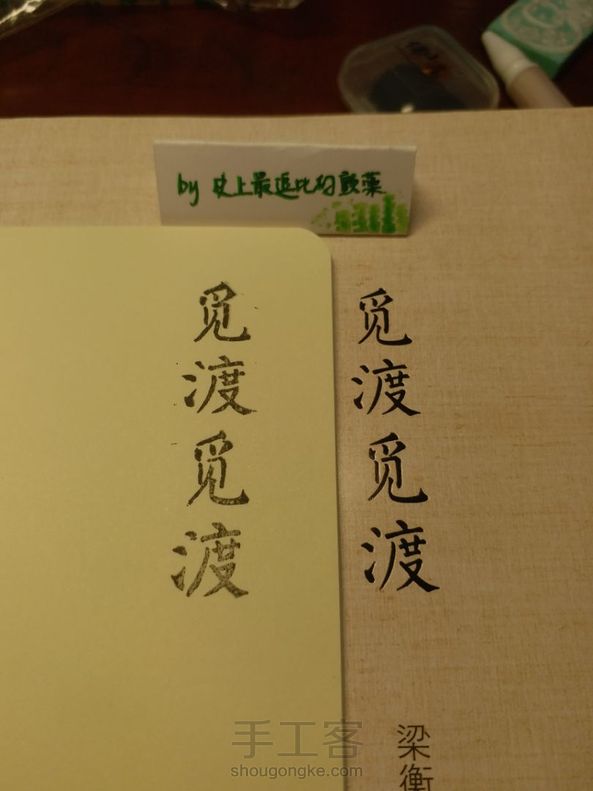 by 史上最逗比的
觅渡觅渡
觅渡觅渡
梁衡
手工客
shougongke.com